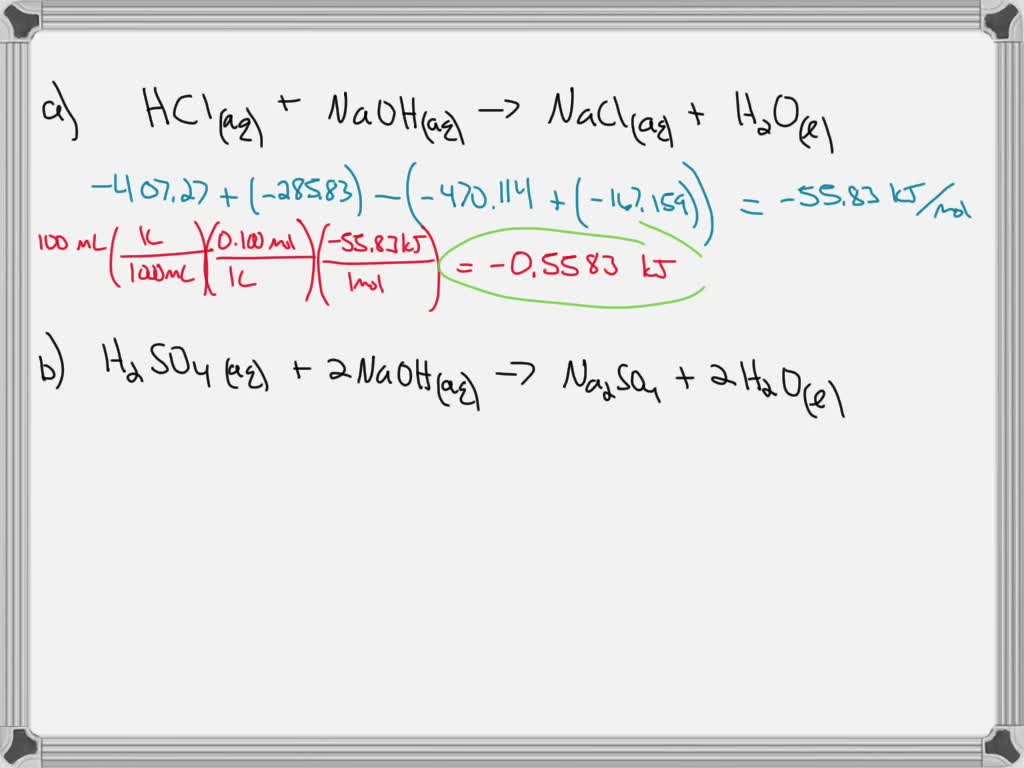 a) HCl(aq) + NaOH(aq) → NaCl(aq) + H₂O(ℓ)
-407.27 + (-285.83) - (-470.114 + (-167.159)) = -55.83 kJ/mol
100 mL (1L/1000mL)(0.100 mol/1L)(-55.83 kJ/1mol) = -0.5583 kJ
b) H₂SO₄(aq) + 2NaOH(aq) → Na₂SO₄ + 2H₂O(ℓ)